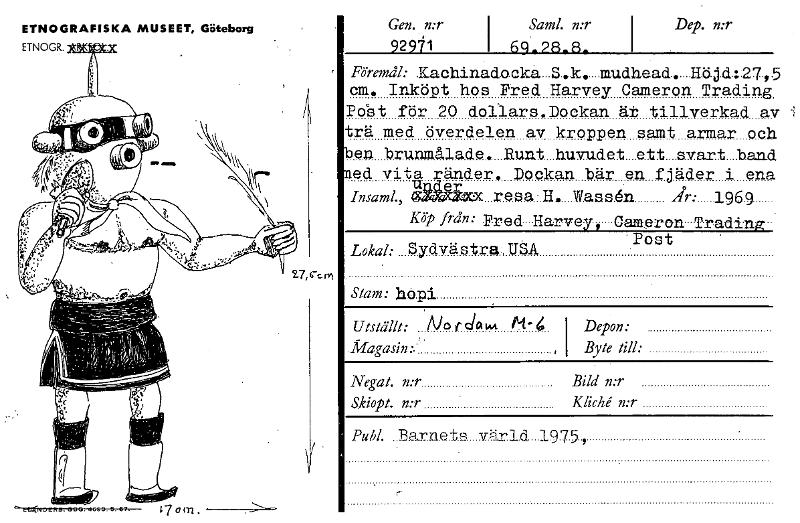 ETNOGRAFISKA MUSEET, Göteborg
ETNOGR. xxxxxx
27,5cm
17 cm.
Gen. n:r Saml. n:r Dep. n:r
92971 69.28.8.
Föremål: Kachinadocka S.k. mudhead. Höjd:27,5
cm. Inköpt hos Fred Harvey Cameron Trading
Post för 20 dollars.Dockan är tillverkad av
trä med överdelen av kroppen samt armar och
ben brunmålade. Runt huvudet ett svart band
med vita ränder. Dockan bär en fjäder i ena
under
Insaml., xxxxxxx resa H. Wassén År: 1969
Köp från: Fred Harvey, Cameron Trading
Post
Lokal: Sydvästra USA
Stam: hopi
Utställt: Nordam M-6 Depon:
Magasin: Byte till:
Negat. n:r Bild n:r
Skiopt. n:r Kliché n:r
Publ. Barnets värld 1975,